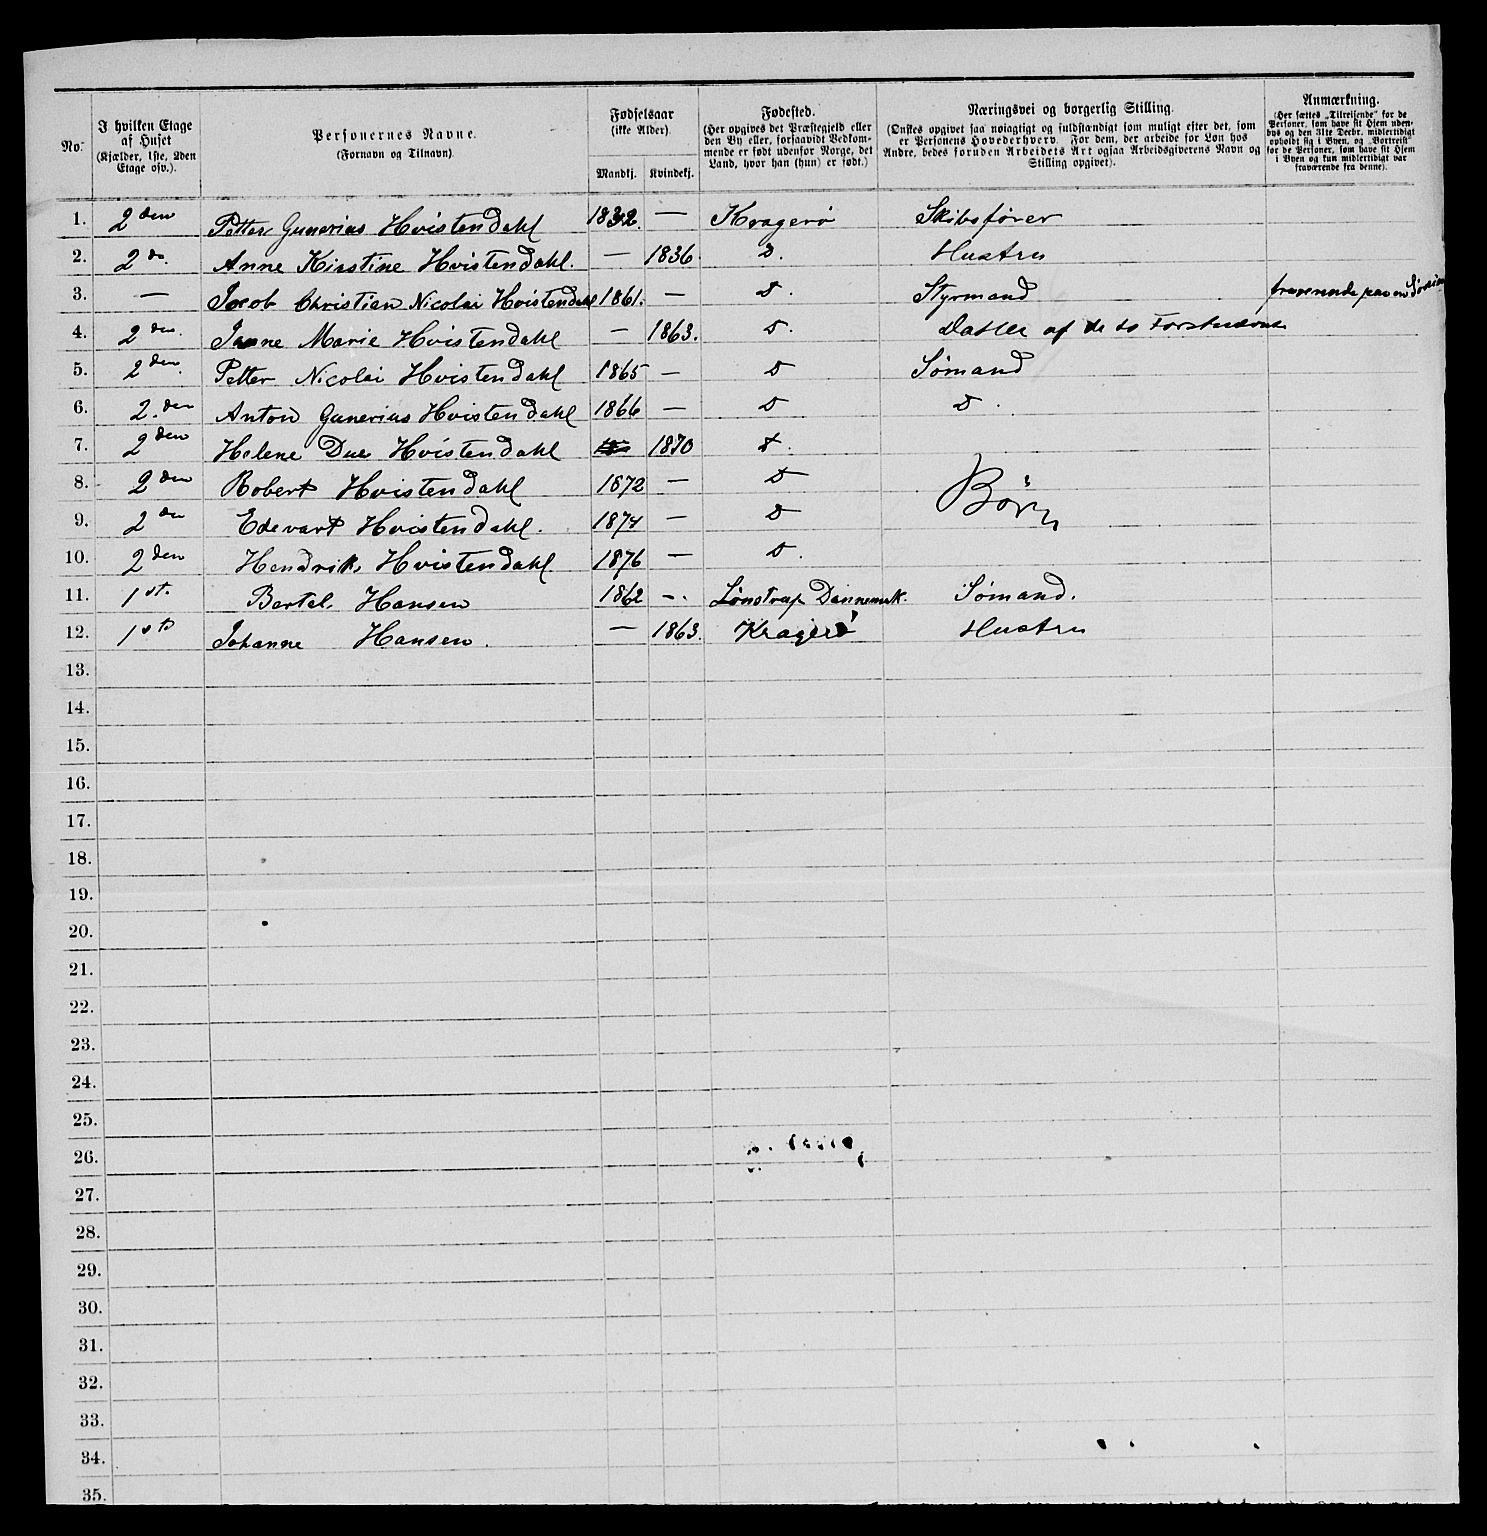 No.
I hvilken Etage af Huset (Kjælder, 1ste, 2den Etage osv.).
Personernes Navne. (Fornavn og Tilnavn).
Fødselsaar (ikke Alder).
Mandkj.
Kvindekj.
Fødested. (Her opgives det Præstegjeld eller den By eller, forsaavidt Vedkommende er født udenfor Norge, det Land, hvor han (hun) er født.)
Næringsvei og borgerlig Stilling. (Ønskes opgivet saa nøiagtigt og fuldstændigt som muligt efter det, som er Personens Hovederhverv. For dem, der arbeide for Løn hos Andre, bedes foruden Arbeidets Art ogsaa Arbeidsgiverens Navn og Stilling opgivet).
Anmærkning. (Her sættes „Tilreisende" for de Personer, som have sit Hjem udenbys og den 31te Decbr. midlertidigt opholdt sig i Byen, og „Bortreist" for de Personer, som have sit Hjem i Byen og kun midlertidigt var fraværende fra denne).
1. 2den Petter Gunerius Hvistendahl 1832. — Kragerø Skibsfører
2. 2de. Anne Kirstine Hvistendahl. — 1836. D. Hustru
3. — Jacob Christian Nicolai Hvistendahl 1861. — D. Styrmand
4. 2den. Janne Marie Hvistendahl — 1863. D. Datter af de to Forstnævnte
5. 2den. Petter Nicolai Hvistendahl 1865 — D Sømand
6. 2.den Anton Gunerius Hvistendahl 1866 — D D.
7. 2den Helene Due Hvistendahl 1870 D.
8. 2den Robert Hvistendahl 1872 — D Børn
9. 2den Edevart Hvistendahl. 1874 — D
10. 2den Hendrik Hvistendahl 1876 — D.
11. 1ste Bertel Hansen 1862 — Lønstrup Dannemark. Sømand.
12. 1ste Johanne Hansen. — 1863. Kragerø Hustru
13.
14.
15.
16.
17.
18.
19.
20.
21.
22.
23.
24.
25.
26.
27.
28.
29.
30.
31.
32.
33.
34.
35.